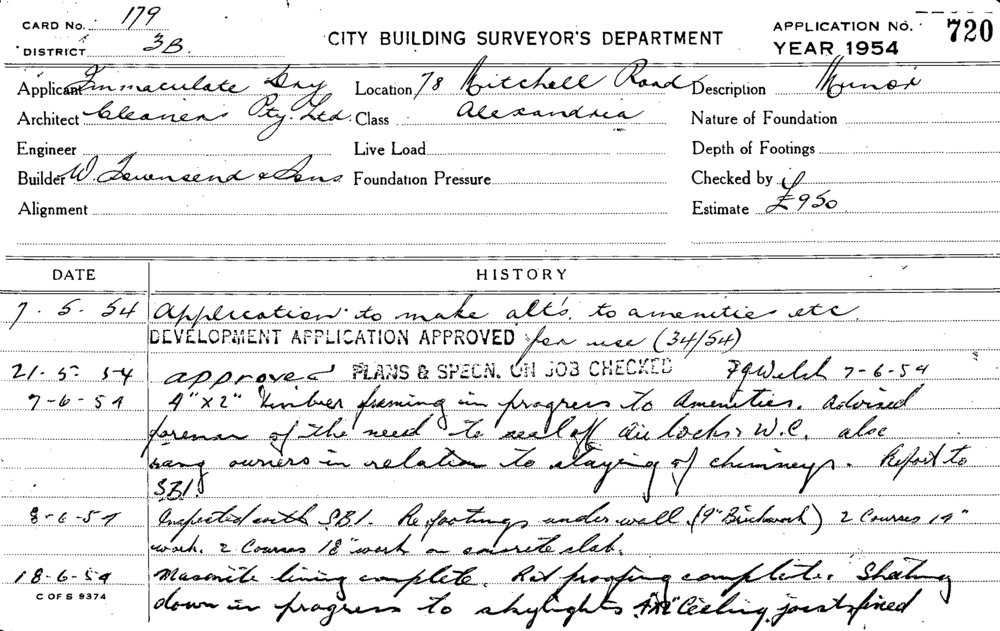 CARD No. 179
DISTRICT 3B.
CITY BUILDING SURVEYOR'S DEPARTMENT
APPLICATION No. 720
YEAR 1954
Applicant Immaculate Dry Location 78 Mitchell Road Description Minor
Architect Cleaners Pty. Ltd. Class Alexandria Nature of Foundation
Engineer Live Load Depth of Footings
Builder W. Townsend & Sons Foundation Pressure Checked by
Alignment Estimate £950
DATE HISTORY
7. 5. 54 Application to make alt's. to amenities etc.
DEVELOPMENT APPLICATION APPROVED for use (34/54)
21. 5. 54 approved PLANS & SPECN. ON JOB CHECKED Welch 7-6-54
7-6-54 4" x 2" timber framing in progress to Amenities. Advised
foreman of the need to seal off air locks: W.C. also
rang owners in relation to staying of chimneys. Report to
SBI.
8-6-54 Inspected with SBI. Re footings under wall. (9" Brickwork) 2 Courses 14"
work. 2 Courses 18" work on concrete slab.
18-6-54 Masonite lining complete. Rat proofing complete. Sheeting
C OF S 9374
down in progress to skylights 4x2" Ceiling joists fixed